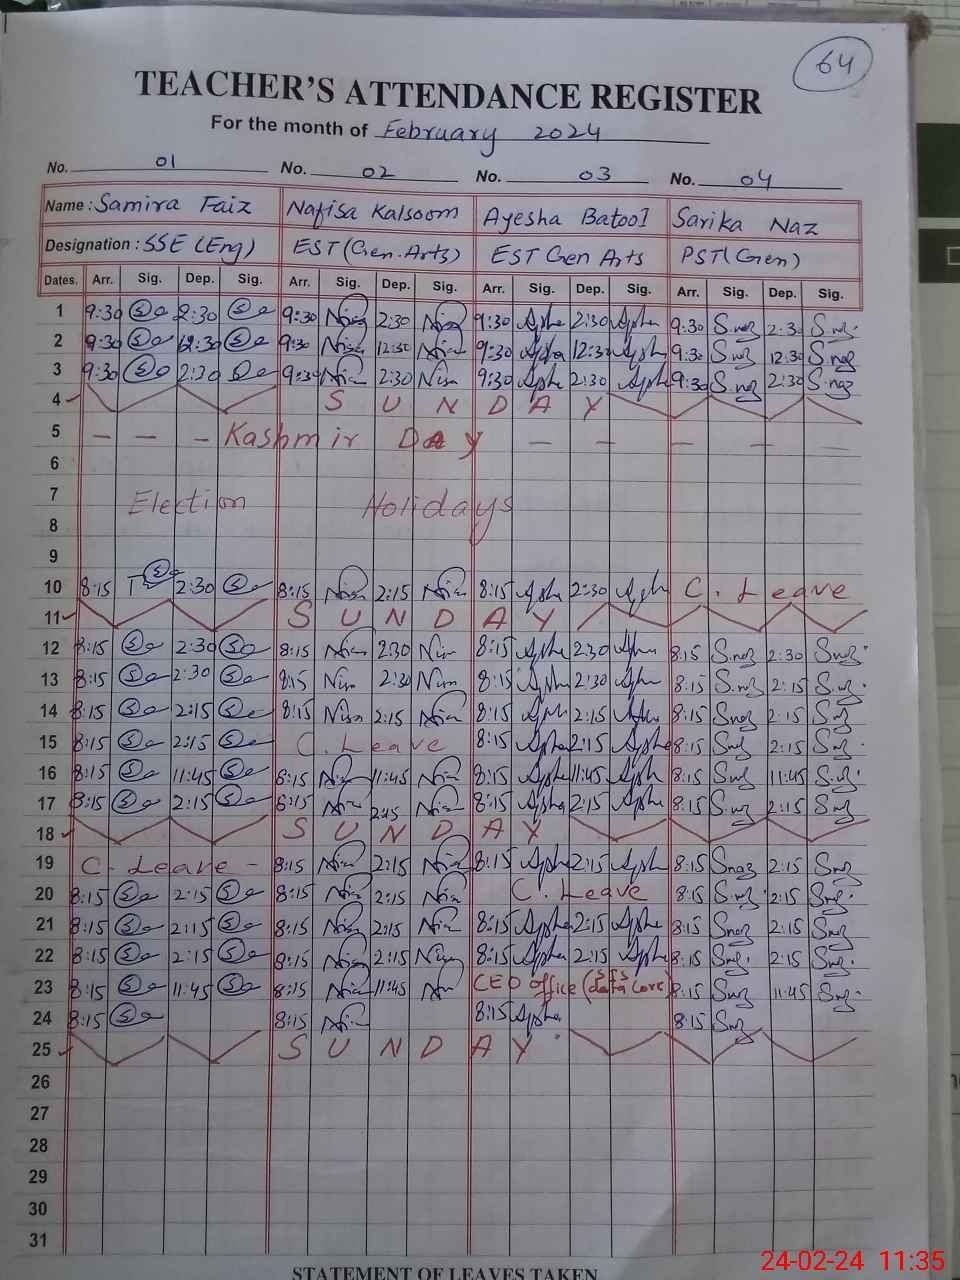 64
TEACHER'S ATTENDANCE REGISTER
For the month of February 2024
No. 01 No. 02 No. 03 No. 04
Name : Samira Faiz Nafisa Kalsoom Ayesha Batool Sarika Naz
Designation : SSE (Eng) EST (Gen. Arts) EST Gen Arts PST (Gen)
Dates. Arr. Sig. Dep. Sig. Arr. Sig. Dep. Sig. Arr. Sig. Dep. Sig. Arr. Sig. Dep. Sig.
1 9:30 2:30 9:30 2:30 9:30 2:30 9:30 S.naz 2:30 S.naz
2 9:30 12:30 9:30 12:30 9:30 12:30 9:30 S.naz 12:30 S.naz
3 9:30 2:30 9:30 2:30 9:30 2:30 9:30 S.naz 2:30 S.naz
4 SUNDAY
5 - - - Kashmir DAY - - - - -
6
7 Election Holidays
8
9
10 8:15 2:30 8:15 2:15 8:15 2:30 C. Leave
11 SUNDAY
12 8:15 2:30 8:15 2:30 8:15 2:30 8:15 S.naz 2:30 S.naz
13 8:15 2:30 8:15 2:30 8:15 2:30 8:15 S.naz 2:15 S.naz
14 8:15 2:15 8:15 2:15 8:15 2:15 8:15 S.naz 2:15 S.naz
15 8:15 2:15 C. Leave 8:15 2:15 8:15 S.naz 2:15 S.naz
16 8:15 11:45 8:15 11:45 8:15 11:45 8:15 S.naz 11:45 S.naz
17 8:15 2:15 8:15 2:15 8:15 2:15 8:15 S.naz 2:15 S.naz
18 SUNDAY
19 C. Leave - 8:15 2:15 8:15 2:15 8:15 S.naz 2:15 S.naz
20 8:15 2:15 8:15 2:15 C. Leave 8:15 S.naz 2:15 S.naz
21 8:15 2:15 8:15 2:15 8:15 2:15 8:15 S.naz 2:15 S.naz
22 8:15 2:15 8:15 2:15 8:15 2:15 8:15 S.naz 2:15 S.naz
23 8:15 11:45 8:15 11:45 CEO office (SIS data 8:15 S.naz 11:45 S.naz
24 8:15 8:15 8:15 8:15 S.naz
25 SUNDAY
26
27
28
29
30
31
STATEMENT OF LEAVES TAKEN
24-02-24 11:35